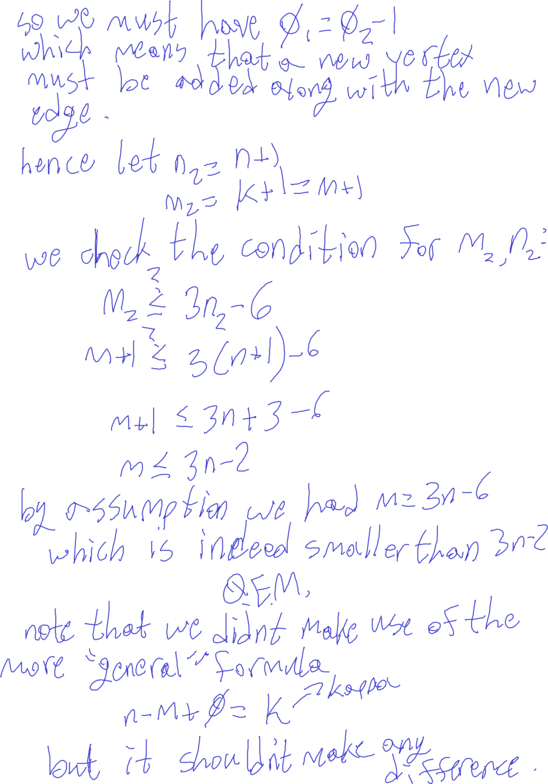 so we must have φ₁=φ₂-1
which means that a new vertex
must be added along with the new
edge.
hence let n₂=n+1
m₂= k+1=m+1
we check the condition for m₂,n₂:
m₂ ≤? 3n₂-6
m+1 ≤? 3(n+1)-6
m+1 ≤ 3n+3-6
m ≤ 3n-2
by assumption we had m=3n-6
which is indeed smaller than 3n-2
Q.E.M,
note that we didnt make use of the
more "general" formula
n-m+φ=K → kappa
but it shouldn't make any
difference.